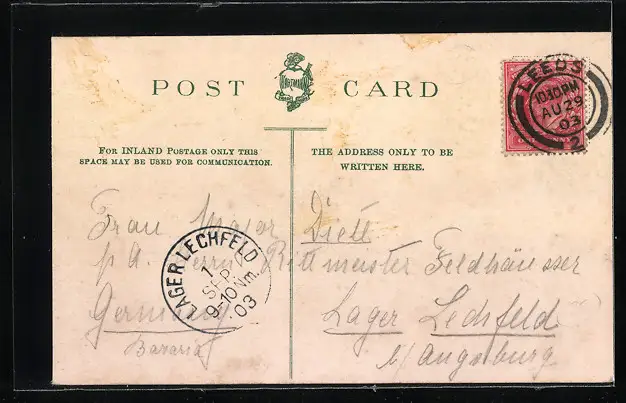 POST CARD
HARTMANN
LEEDS
10.30PM
AU 29
03
2
FOR INLAND POSTAGE ONLY THIS
SPACE MAY BE USED FOR COMMUNICATION.
THE ADDRESS ONLY TO BE
WRITTEN HERE.
Frau Major Dietl
p. A. Herrn Rittmeister Feldhäusser
Lager Lechfeld
Germany
b/ Augsburg
Bavaria
LAGER LECHFELD
1
SEP.
9-10 Nm.
03